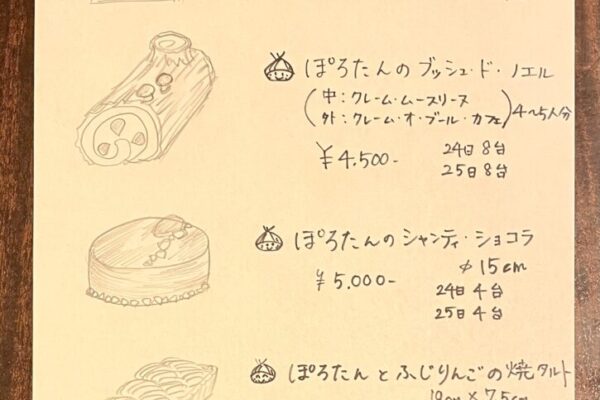 ぽろたんのブッシュ・ド・ノエル
(中:クレーム・ムースリーヌ
外:クレーム・オ・ブール・カフェ) 4〜5人分
¥4,500-
24日 8台
25日 8台
ぽろたんのシャンティ・ショコラ
φ15cm
¥5.000-
24日 4台
25日 4台
ぽろたんとふじりんごの焼タルト